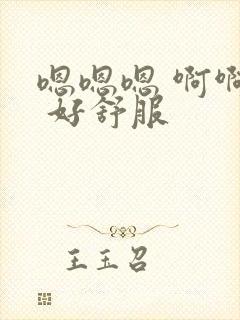 嗯嗯嗯 啊啊
好舒服
王玉召